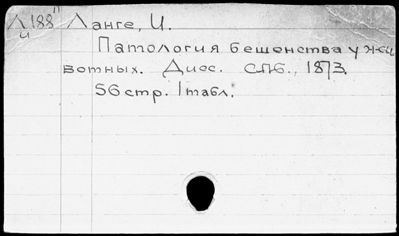 Л188 Ланге, И.
и
Патология бешенства у жи
вотных. Дисс. СПб., 1873.
56 стр. 1 табл.